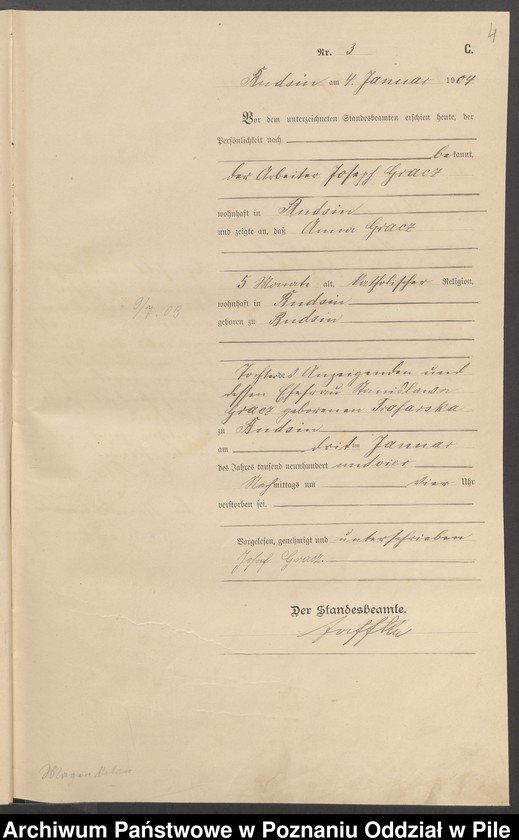 4
Nr. 3 C.
Rudsin am 4. Januar 1904
Vor dem unterzeichneten Standesbeamten erschien heute, der
Persönlichkeit nach
bekannt,
der Arbeiter Joseph Gracz
wohnhaft in Rudsin
und zeigte an, daß Anna Gracz
5 Monate alt, katholischer Religion,
wohnhaft in Rudsin
geboren zu Rudsin
Tochter des Anzeigenden und
dessen Ehefrau Stanislawa
Gracz geborenen
zu Rudsin
am dritten Januar
des Jahres tausend neunhundert und vier
Nachmittags um vier Uhr
verstorben sei.
Vorgelesen, genehmigt und unterschrieben
Josef Gracz.
Der Standesbeamte.
9/7. 03
Archiwum Państwowe w Poznaniu Oddział w Pile